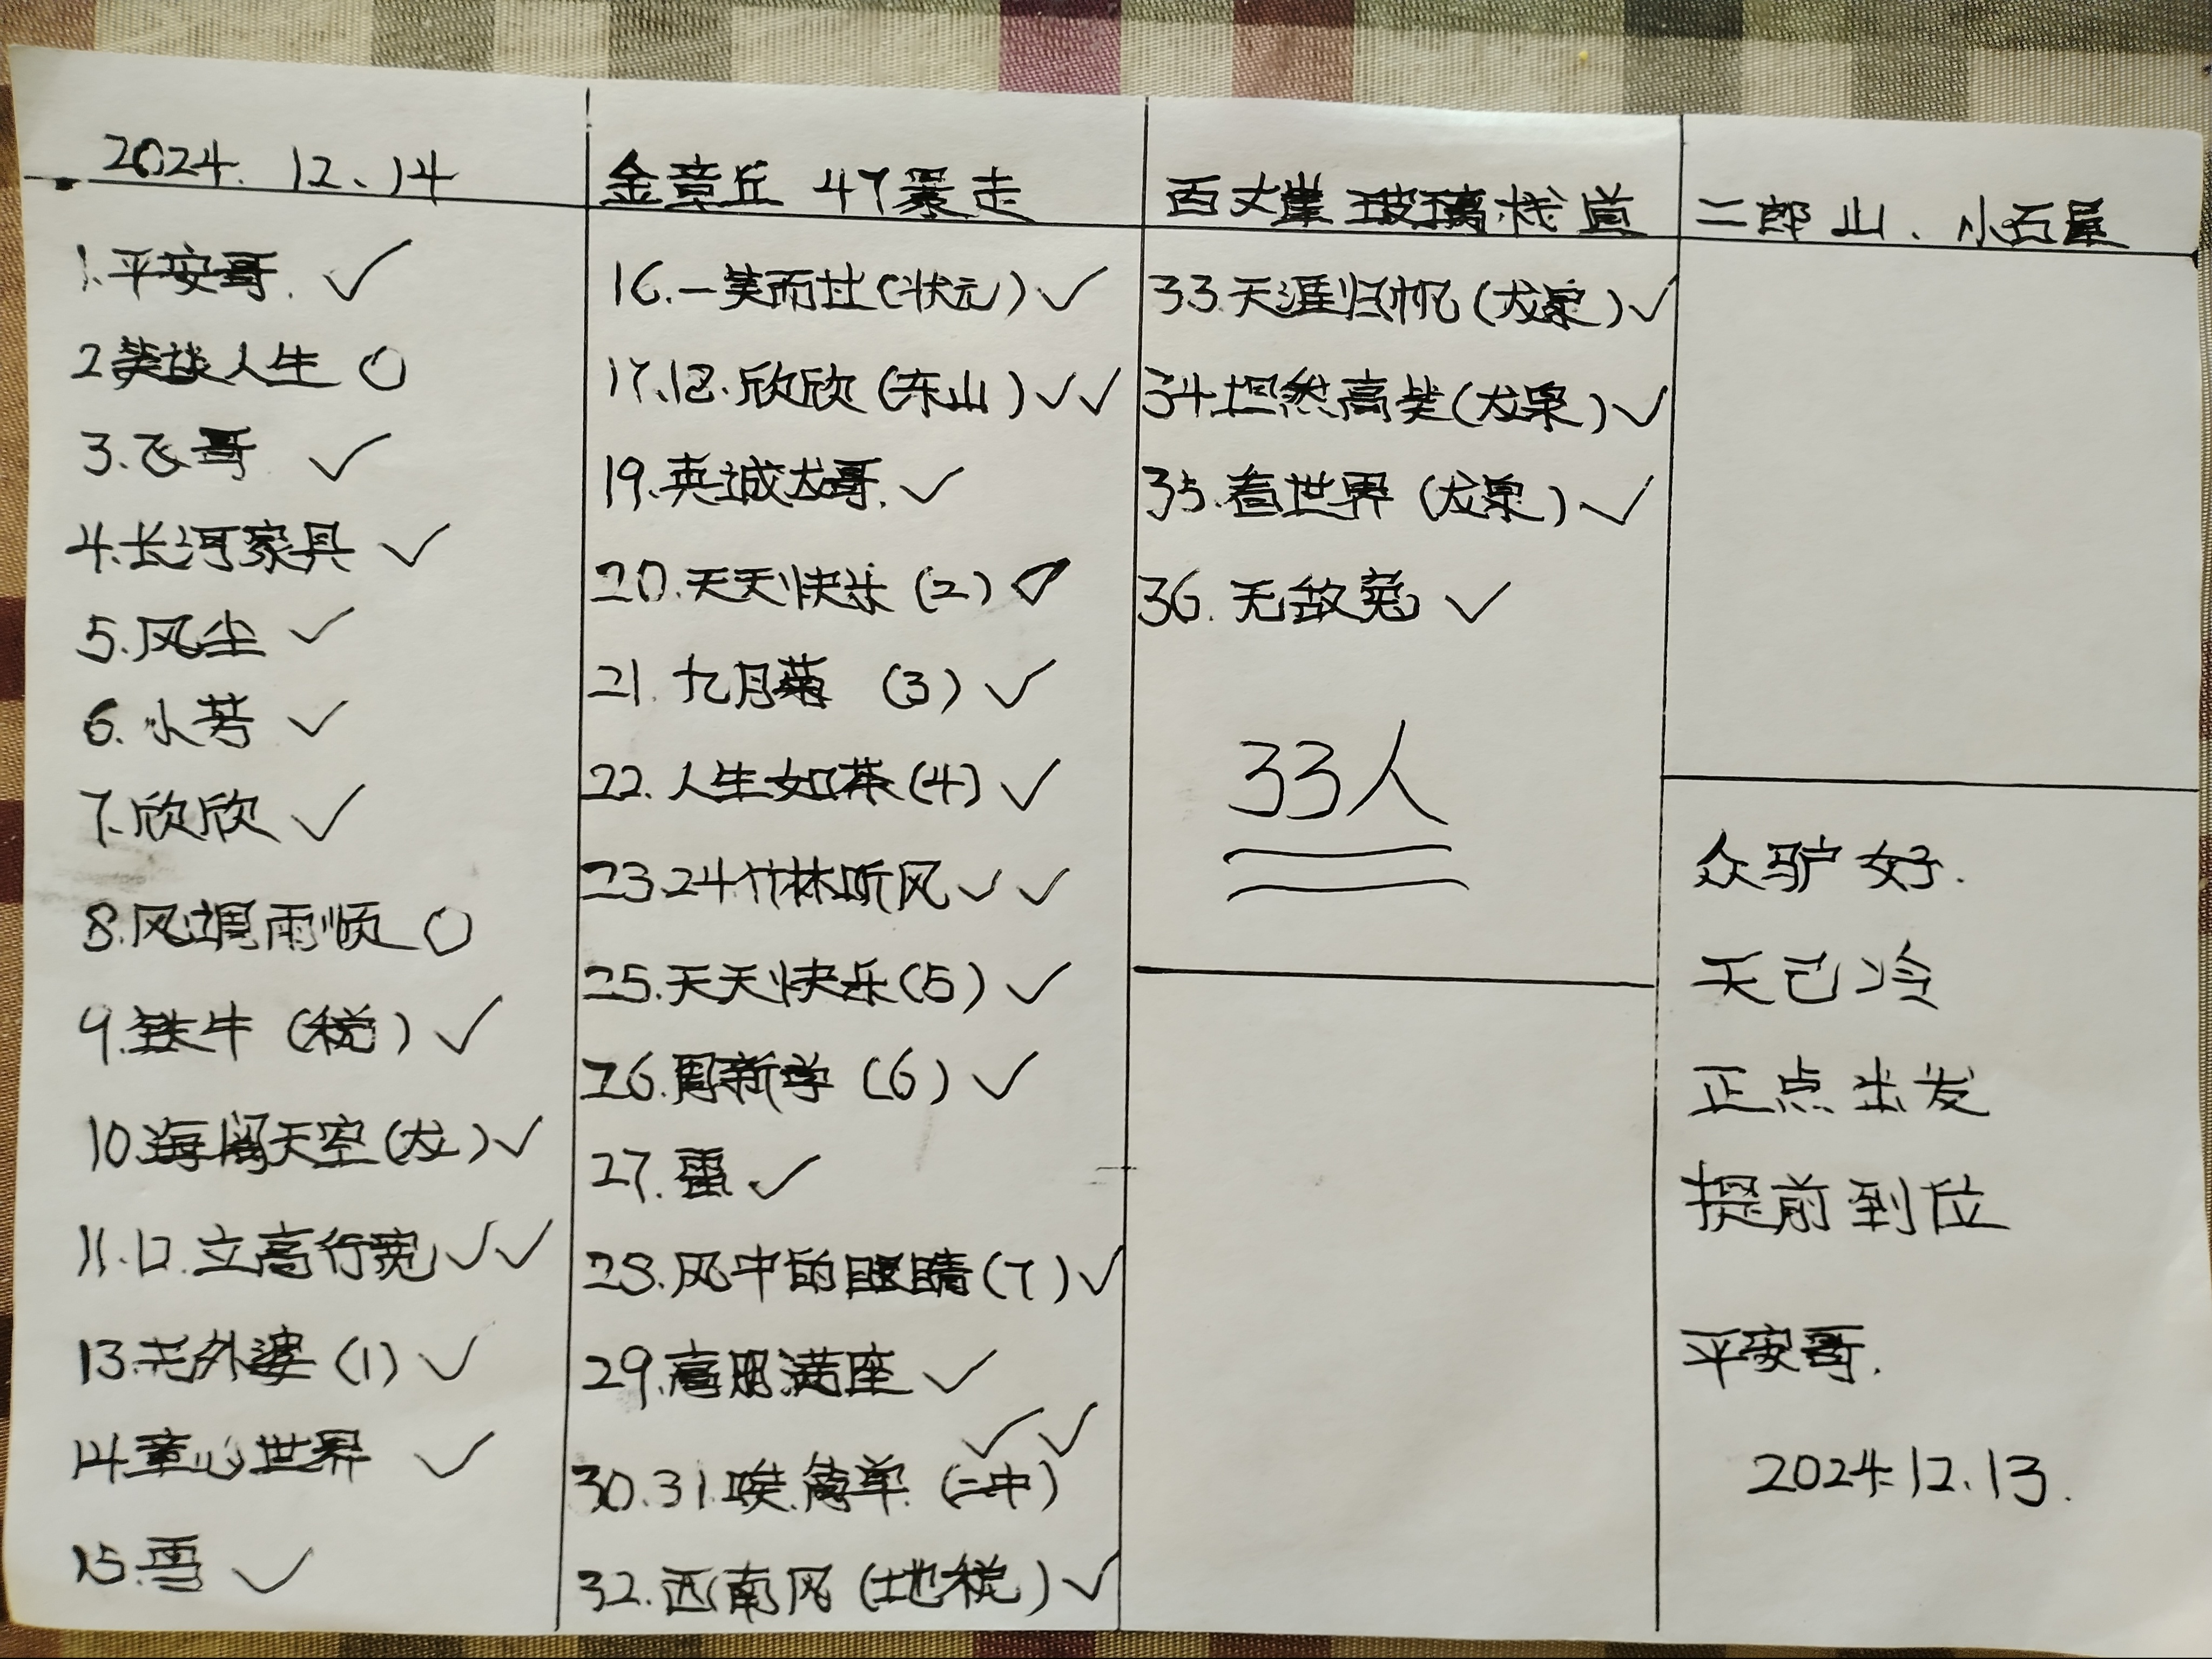 2024. 12、14
1.平安哥. ✓
2笑谈人生 ○
3.飞哥 ✓
4.长河家具 ✓
5.风尘 ✓
6.小芳 ✓
7.欣欣 ✓
8.风调雨顺 ○
9.铁牛（税）✓
10.海阔天空（龙）✓
11.12.立高行宽 ✓✓
13.无外婆（1）✓
14.童心世界 ✓
15.雪 ✓
金章丘 47暴走
16.一笑而过（状元）✓
17.18.欣欣（东山）✓✓
19.英诚龙哥. ✓
20.天天快乐（2）
21.九月菊（3）✓
22.人生如茶（4）✓
23.24竹林听风 ✓✓
25.天天快乐（5）✓
26.周新学（6）✓
27.雷 ✓
28.风中的眼睛（7）✓
29.高朋满座 ✓
✓✓
30.31.唉.简单.（二中）
32.西南风（地税）✓
西丈崖玻璃栈道
33.天涯归帆（龙泉）✓
34坦然高笑（龙泉）✓
35.看世界（龙泉）✓
36.无敌兔 ✓
33人
二郎山、小石屋
众驴好.
天已冷
正点出发
提前到位
平安哥.
2024.12.13.